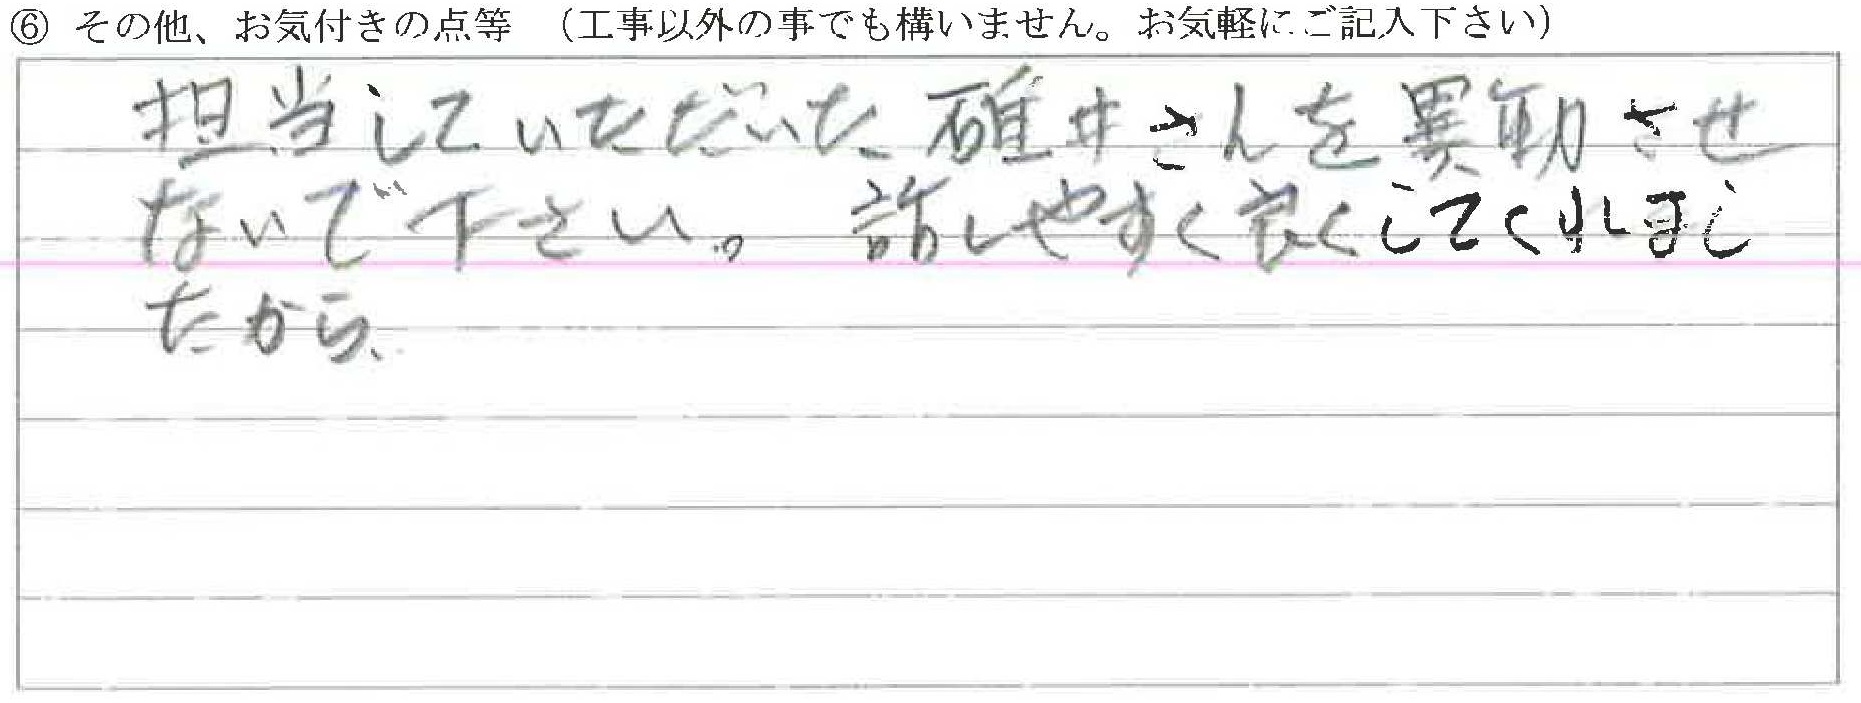 ⑥ その他、お気付きの点等 （工事以外の事でも構いません。お気軽にご記入下さい）
担当していただいた碓井さんを異動させ
ないで下さい。話しやすく良くしてくれまし
たから、